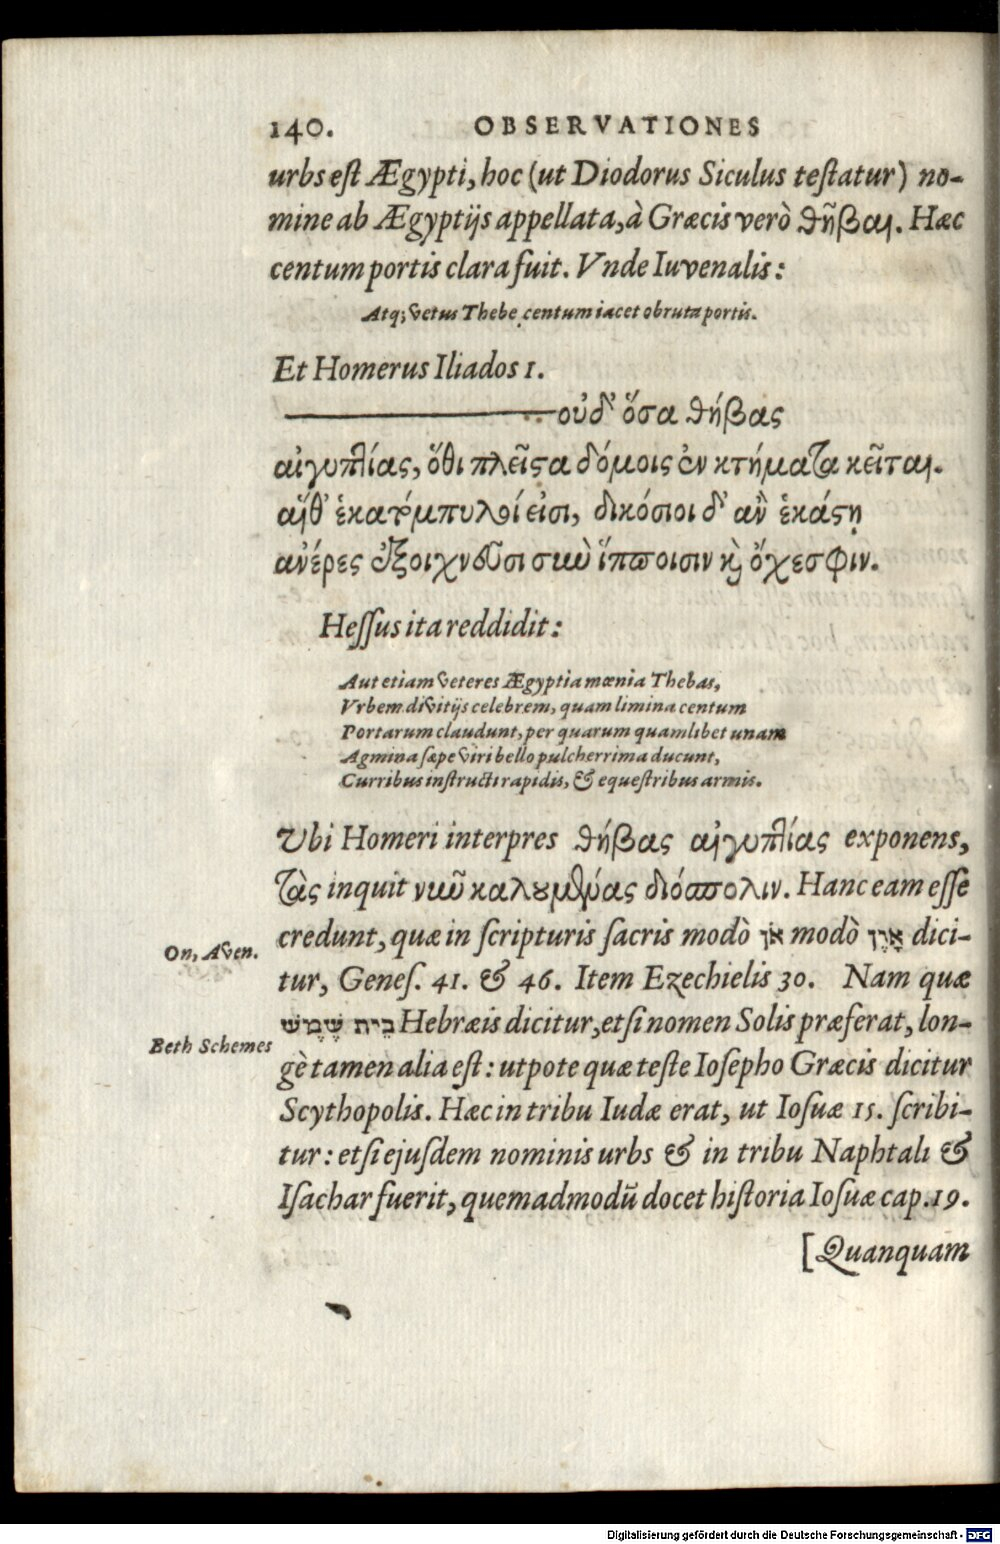 140. OBSERVATIONES
urbs eſt Ægypti, hoc (ut Diodorus Siculus teſtatur) no-
mine ab Ægyptijs appellata, à Græcis verò θῆβαι. Hæc
centum portis clara fuit. Vnde Iuvenalis:
Atq; vetus Thebe centum iacet obruta portis.
Et Homerus Iliados 1.
οὐδ' ὅσα θήβας
αἰγυπτίας, ὅθι πλεῖστα δόμοις ἐν κτήματα κεῖται.
αἵθ' ἑκατόμπυλοί εἰσι, δικόσιοι δ' ἀν' ἑκάστη
ἀνέρες ἐξοιχνεῦσι σὺν ἵπποισιν καὶ ὄχεσφιν.
Heſſus ita reddidit:
Aut etiam veteres Ægyptia mœnia Thebas,
Vrbem divitijs celebrem, quam limina centum
Portarum claudunt, per quarum quamlibet unam
Agmina ſæpe viri bello pulcherrima ducunt,
Curribus inſtructi rapidis, & equeſtribus armis.
Ubi Homeri interpres θήβας αἰγυπτίας exponens,
τὰς inquit νῦν καλουμένας διόσπολιν. Hanc eam eſſe
On, Aven.
credunt, quæ in ſcripturis ſacris modò אֹן modò אָוֶן dici-
tur, Geneſ. 41. & 46. Item Ezechielis 30. Nam quæ
Beth Schemes
בֵּית שֶׁמֶשׁ Hebræis dicitur, etſi nomen Solis præferat, lon-
gè tamen alia eſt: utpote quæ teſte Ioſepho Græcis dicitur
Scythopolis. Hæc in tribu Iudæ erat, ut Ioſuæ 15. ſcribi-
tur: etſi ejuſdem nominis urbs & in tribu Naphtali &
Iſachar fuerit, quemadmodū docet hiſtoria Ioſuæ cap. 19.
[Quanquam
Digitalisierung gefördert durch die Deutsche Forschungsgemeinschaft - DFG